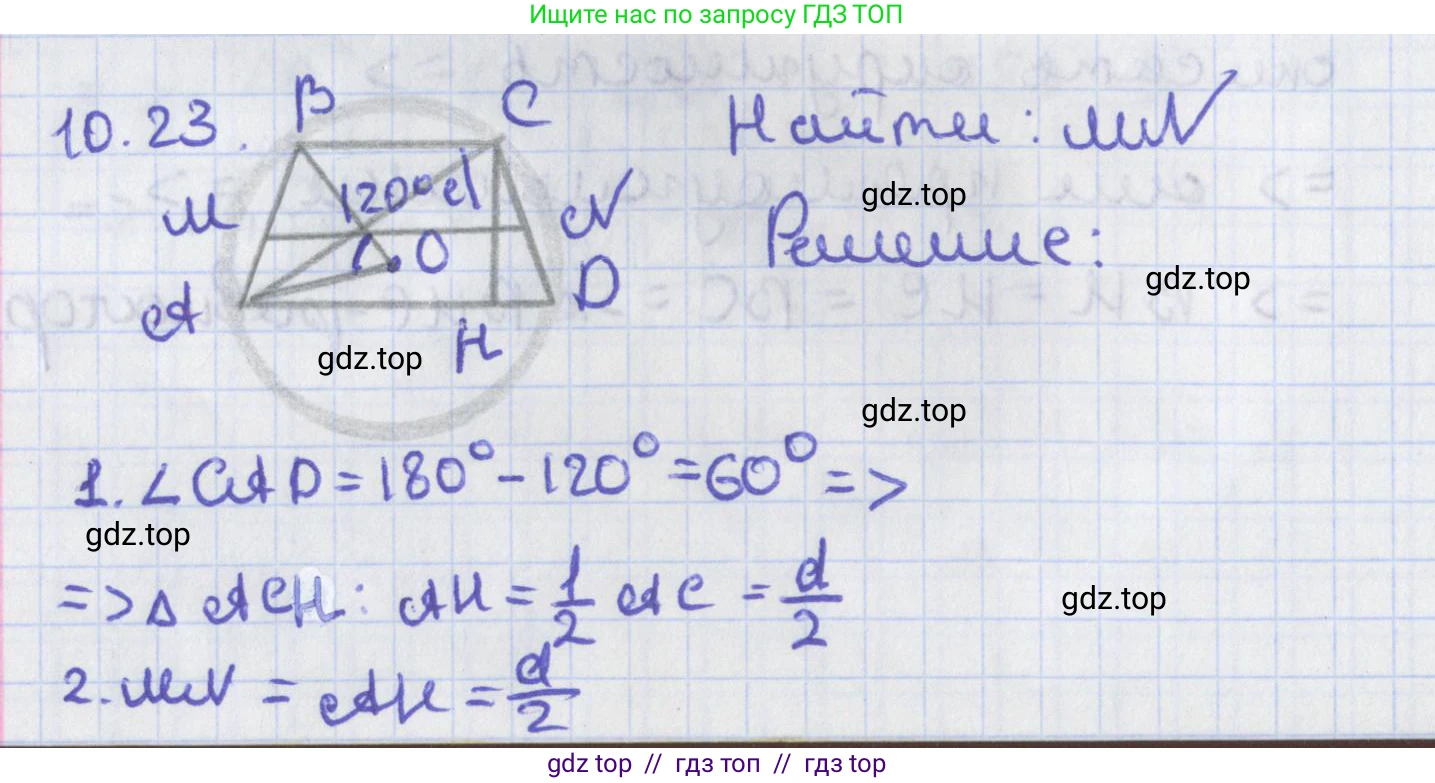 Ищите нас по запросу ГДЗ ТОП
10.23.
B
C
Найти: MN
M
120°
d
N
gdz.top
O
Решение:
A
D
gdz.top
H
gdz.top
gdz.top
1. ∠CAD = 180° - 120° = 60° =>
gdz.top
=> △ ACH: AH = 1/2 AC = d/2
gdz.top
2. MN = AH = d/2
gdz top // гдз топ // гдз top